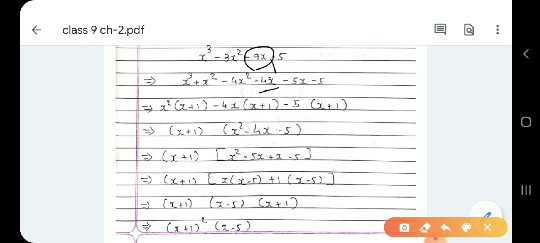 class 9 ch-2.pdf
x³ - 3x² - 9x - 5
⇒ x³ + x² - 4x² - 4x - 5x - 5
⇒ x² (x+1) - 4x (x+1) - 5 (x+1)
⇒ (x+1) (x² - 4x - 5)
⇒ (x+1) [x² - 5x + x - 5]
⇒ (x+1) [x(x-5) + 1(x-5)]
⇒ (x+1) (x-5) (x+1)
⇒ (x+1)² (x-5)